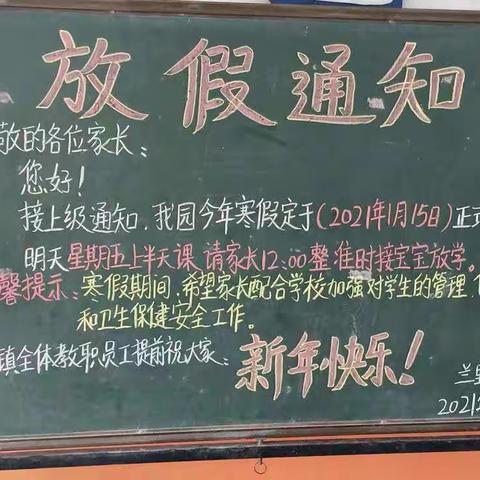 放假通知
敬的各位家长：
您好！
接上级通知，我园今年寒假定于(2021年1月15日)正式
明天星期五上半天课，请家长12:00整准时接宝宝放学。
馨提示：寒假期间，希望家长配合学校加强对学生的管理，
和卫生保健安全工作。
镇全体教职员工提前祝大家：
新年快乐！
兰里
2021